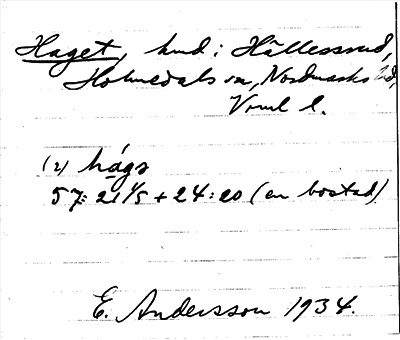 Haget, hmd: Hällessrud,
Holmedals sn, Nordmarks hd,
Vrml l.
(2) hágs
57: 21 1/5 + 24:20 (en bostad)
E. Andersson 1934.